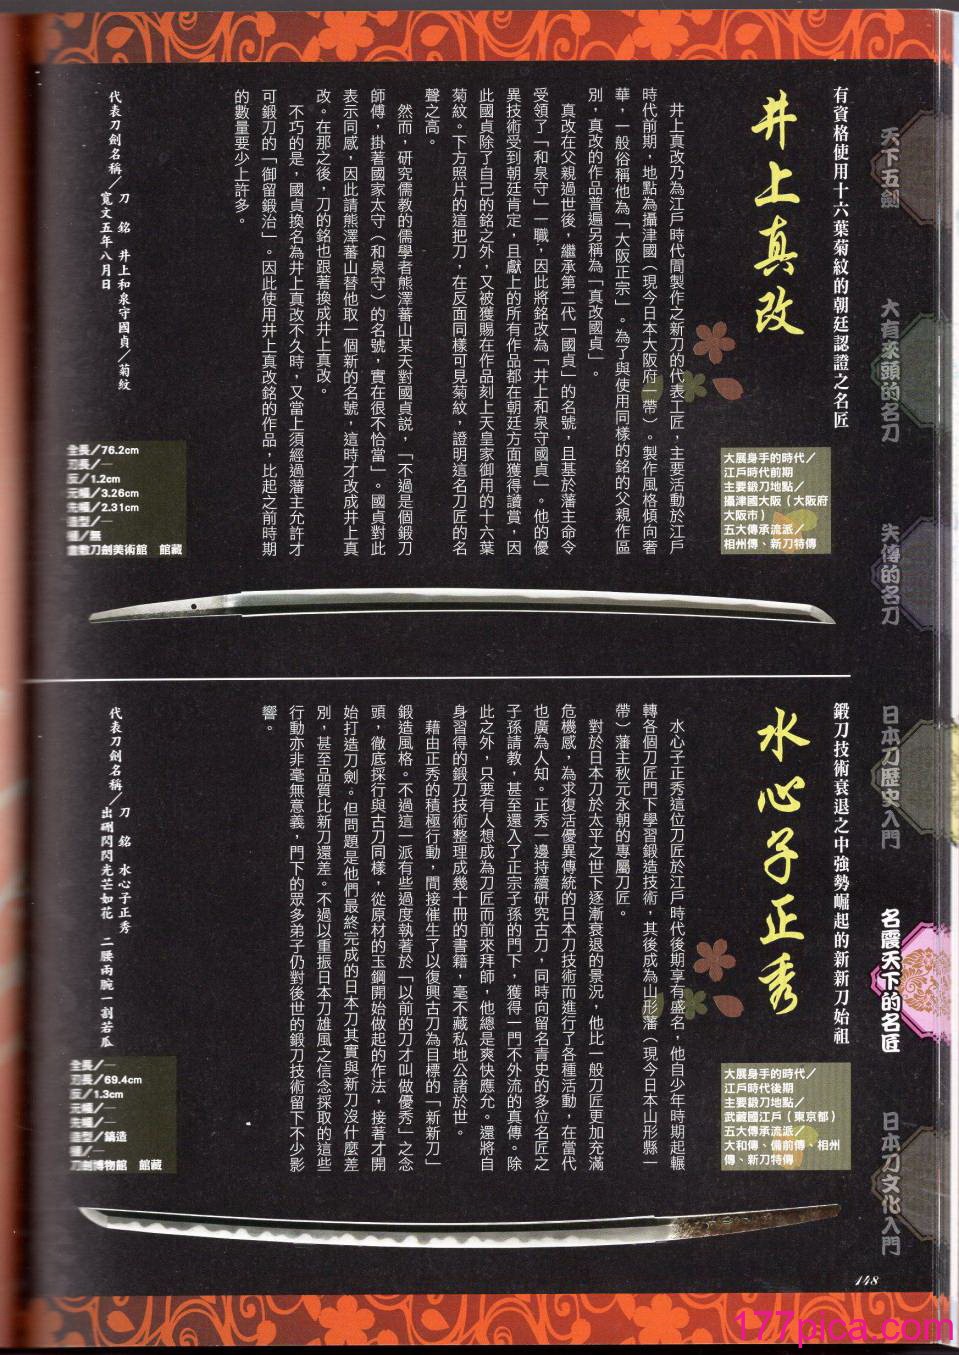 天下五劍
大有來頭的名刀
失傳的名刀
日本刀歷史入門
名震天下的名匠
日本刀文化入門
有資格使用十六葉菊紋的朝廷認證之名匠
井上真改
大展身手的時代／
江戶時代前期
主要鍛刀地點／
攝津國大阪（大阪府
大阪市）
五大傳承流派／
相州傳、新刀特傳
井上真改乃為江戶時代間製作之新刀的代表工匠，主要活動於江戶
時代前期，地點為攝津國（現今日本大阪府一帶）。製作風格傾向奢
華，一般俗稱他為「大阪正宗」。為了與使用同樣的銘的父親作區
別，真改的作品普遍另稱為「真改國貞」。
真改在父親過世後，繼承第二代「國貞」的名號，且基於藩主命令
受領了「和泉守」一職，因此將銘改為「井上和泉守國貞」。他的優
異技術受到朝廷肯定，且獻上的所有作品都在朝廷方面獲得讚賞，因
此國貞除了自己的銘之外，又被獲賜在作品刻上天皇家御用的十六葉
菊紋。下方照片的這把刀，在反面同樣可見菊紋，證明這名刀匠的名
聲之高。
然而，研究儒教的儒學者熊澤蕃山某天對國貞說，「不過是個鍛刀
師傅，掛著國家太守（和泉守）的名號，實在很不恰當」。國貞對此
表示同感，因此請熊澤蕃山替他取一個新的名號，這時才改成井上真
改。在那之後，刀的銘也跟著換成井上真改。
不巧的是，國貞換名為井上真改不久時，又當上須經過藩主允許才
可鍛刀的「御留鍛治」。因此使用井上真改銘的作品，比起之前時期
的數量要少上許多。
代表刀劍名稱／刀　銘　井上和泉守國貞／菊紋
寬文五年八月日
全長／76.2cm
刃長／—
反／1.2cm
元幅／3.26cm
先幅／2.31cm
造型／—
種／無
倉敷刀劍美術館　館藏
鍛刀技術衰退之中強勢崛起的新新刀始祖
水心子正秀
大展身手的時代／
江戶時代後期
主要鍛刀地點／
武藏國江戶（東京都）
五大傳承流派／
大和傳、備前傳、相州
傳、新刀特傳
水心子正秀這位刀匠於江戶時代後期享有盛名，他自少年時期起輾
轉各個刀匠門下學習鍛造技術，其後成為山形藩（現今日本山形縣一
帶）藩主秋元永朝的專屬刀匠。
對於日本刀於太平之世下逐漸衰退的景況，他比一般刀匠更加充滿
危機感，為求復活優異傳統的日本刀技術而進行了各種活動，在當代
也廣為人知。正秀一邊持續研究古刀，同時向留名青史的多位名匠之
子孫請教，甚至還入了正宗子孫的門下，獲得一門不外流的真傳。除
此之外，只要有人想成為刀匠而前來拜師，他總是爽快應允。還將自
身習得的鍛刀技術整理成幾十冊的書籍，毫不藏私地公諸於世。
藉由正秀的積極行動，間接催生了以復興古刀為目標的「新新刀」
鍛造風格。不過這一派有些過度執著於「以前的刀才叫做優秀」之念
頭，徹底採行與古刀同樣，從原材的玉鋼開始做起的作法，接著才開
始打造刀劍。但問題是他們最終完成的日本刀其實與新刀沒什麼差
別，甚至品質比新刀還差。不過以重振日本刀雄風之信念採取的這些
行動亦非毫無意義，門下的眾多弟子仍對後世的鍛刀技術留下不少影
響。
代表刀劍名稱／刀　銘　水心子正秀
出硎閃閃光芒如花　二腰兩腕一割若瓜
全長／—
刃長／69.4cm
反／1.3cm
元幅／—
先幅／—
造型／鎬造
種／—
刀劍博物館　館藏
148
177pica.com